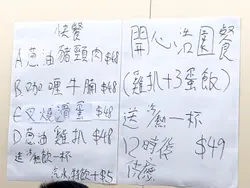 快餐
A 葱油豬頸肉 $48
B 咖喱牛腩 $48
C 叉燒蛋 $48
D 葱油雞扒 $48
送凍飲一杯
汽水特飲+$5
開心浴園餐
(雞扒+3蛋飯)
送凍飲一杯
12時後 $49
供應